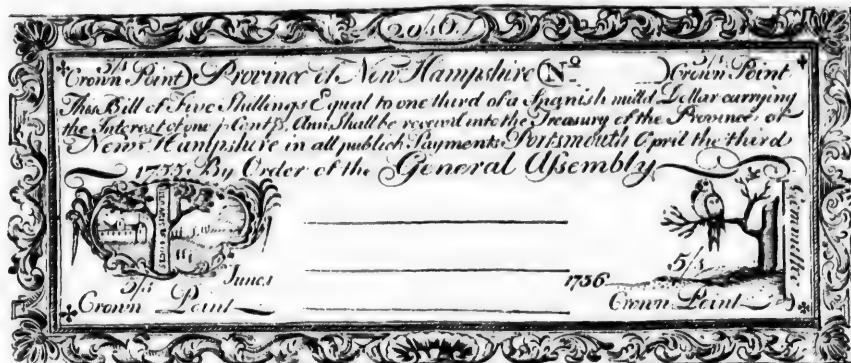 5/s Province of New Hampshire (No ) 5/s
Crown Point Crown Point
This Bill of Five Shillings Equal to one third of a Spanish milld Dollar carrying
the Interest of one p Cent p. Ann. Shall be receivd into the Treasury of the Province of
New Hampshire in all publick Payments Portsmouth April the third
1755 By Order of the General Assembly
Committee
June 1 1756
5/s 5/s
Crown Point Crown Point